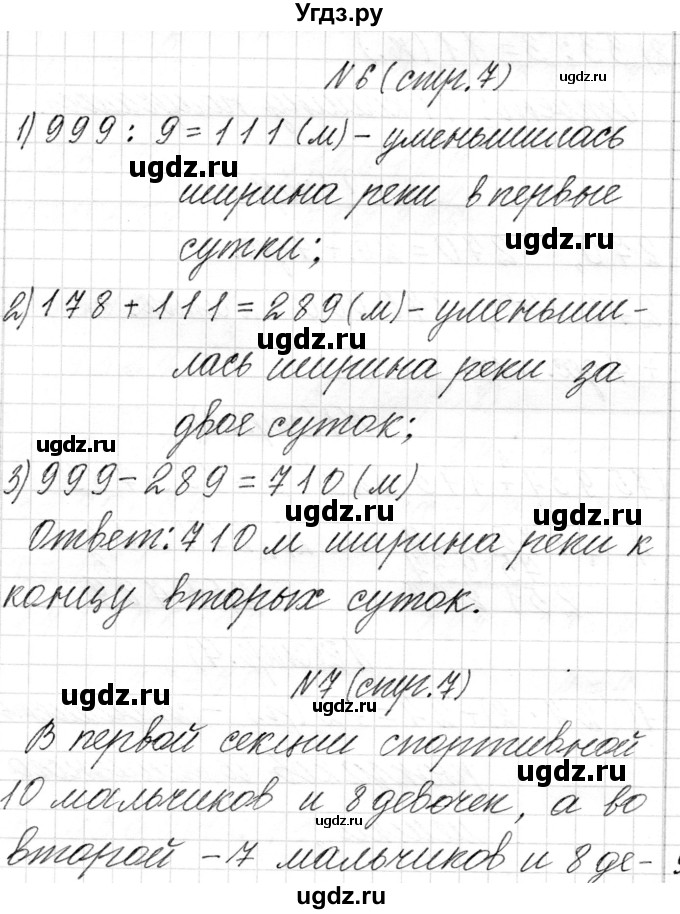 Угдз.ру
№6 (стр.7)
ugdz.ru
1) 999 : 9 = 111 (м) - уменьшилась
ugdz.ru
ширина реки в первые
ugdz.ru
сутки;
2) 178 + 111 = 289 (м) - уменьши-
ugdz.ru
лась ширина реки за
двое суток;
ugdz.ru
3) 999 - 289 = 710 (м)
ugdz.ru
ugdz.ru
Ответ: 710 м ширина реки к
концу вторых суток.
№7 (стр.7)
ugdz.ru
ugdz.ru
В первой секции спортивной
ugdz.ru
10 мальчиков и 8 девочек, а во
ugdz.ru
второй - 7 мальчиков и 8 де-
ugdz.ru